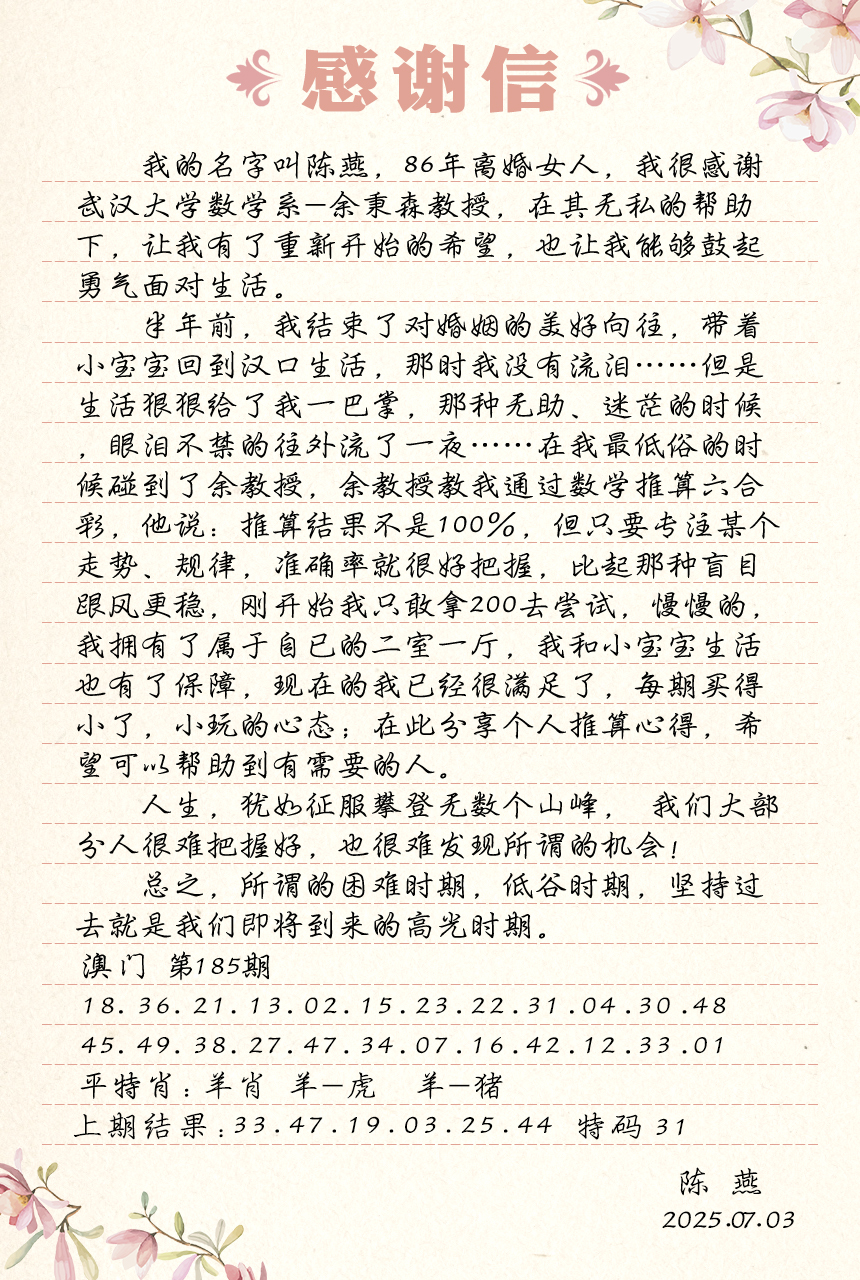 感谢信
我的名字叫陈燕，86年离婚女人，我很感谢
武汉大学数学系—余秉森教授，在其无私的帮助
下，让我有了重新开始的希望，也让我能够鼓起
勇气面对生活。
半年前，我结束了对婚姻的美好向往，带着
小宝宝回到汉口生活，那时我没有流泪……但是
生活狠狠给了我一巴掌，那种无助、迷茫的时候
，眼泪不禁的往外流了一夜……在我最低俗的时
候碰到了余教授，余教授教我通过数学推算六合
彩，他说：推算结果不是100%，但只要专注某个
走势、规律，准确率就很好把握，比起那种盲目
跟风更稳，刚开始我只敢拿200去尝试，慢慢的，
我拥有了属于自己的二室一厅，我和小宝宝生活
也有了保障，现在的我已经很满足了，每期买得
小了，小玩的心态；在此分享个人推算心得，希
望可以帮助到有需要的人。
人生，犹如征服攀登无数个山峰， 我们大部
分人很难把握好，也很难发现所谓的机会！
总之，所谓的困难时期，低谷时期，坚持过
去就是我们即将到来的高光时期。
澳门 第185期
18.36.21.13.02.15.23.22.31.04.30.48
45.49.38.27.47.34.07.16.42.12.33.01
平特肖：羊肖 羊—虎 羊—猪
上期结果：33.47.19.03.25.44 特码 31
陈 燕
2025.07.03